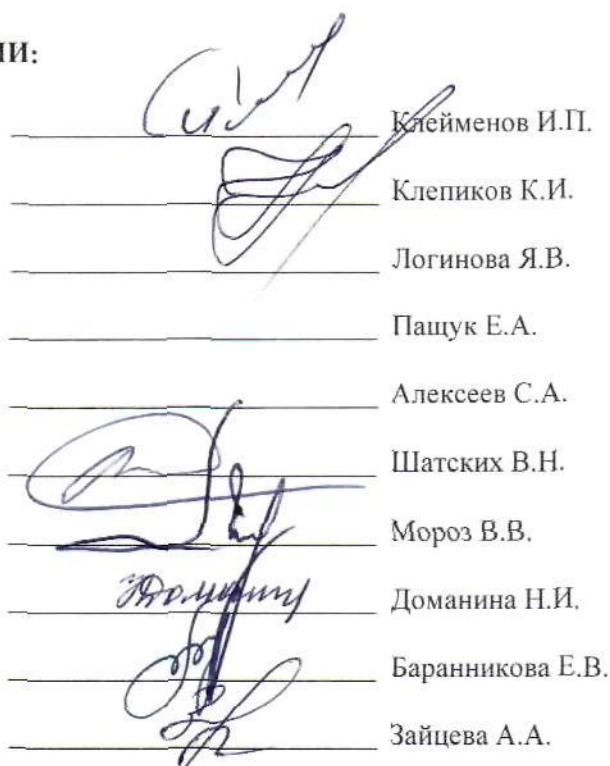 ИИ:
Клейменов И.П.
Клепиков К.И.
Логинова Я.В.
Пащук Е.А.
Алексеев С.А.
Шатских В.Н.
Мороз В.В.
Доманина Н.И.
Баранникова Е.В.
Зайцева А.А.